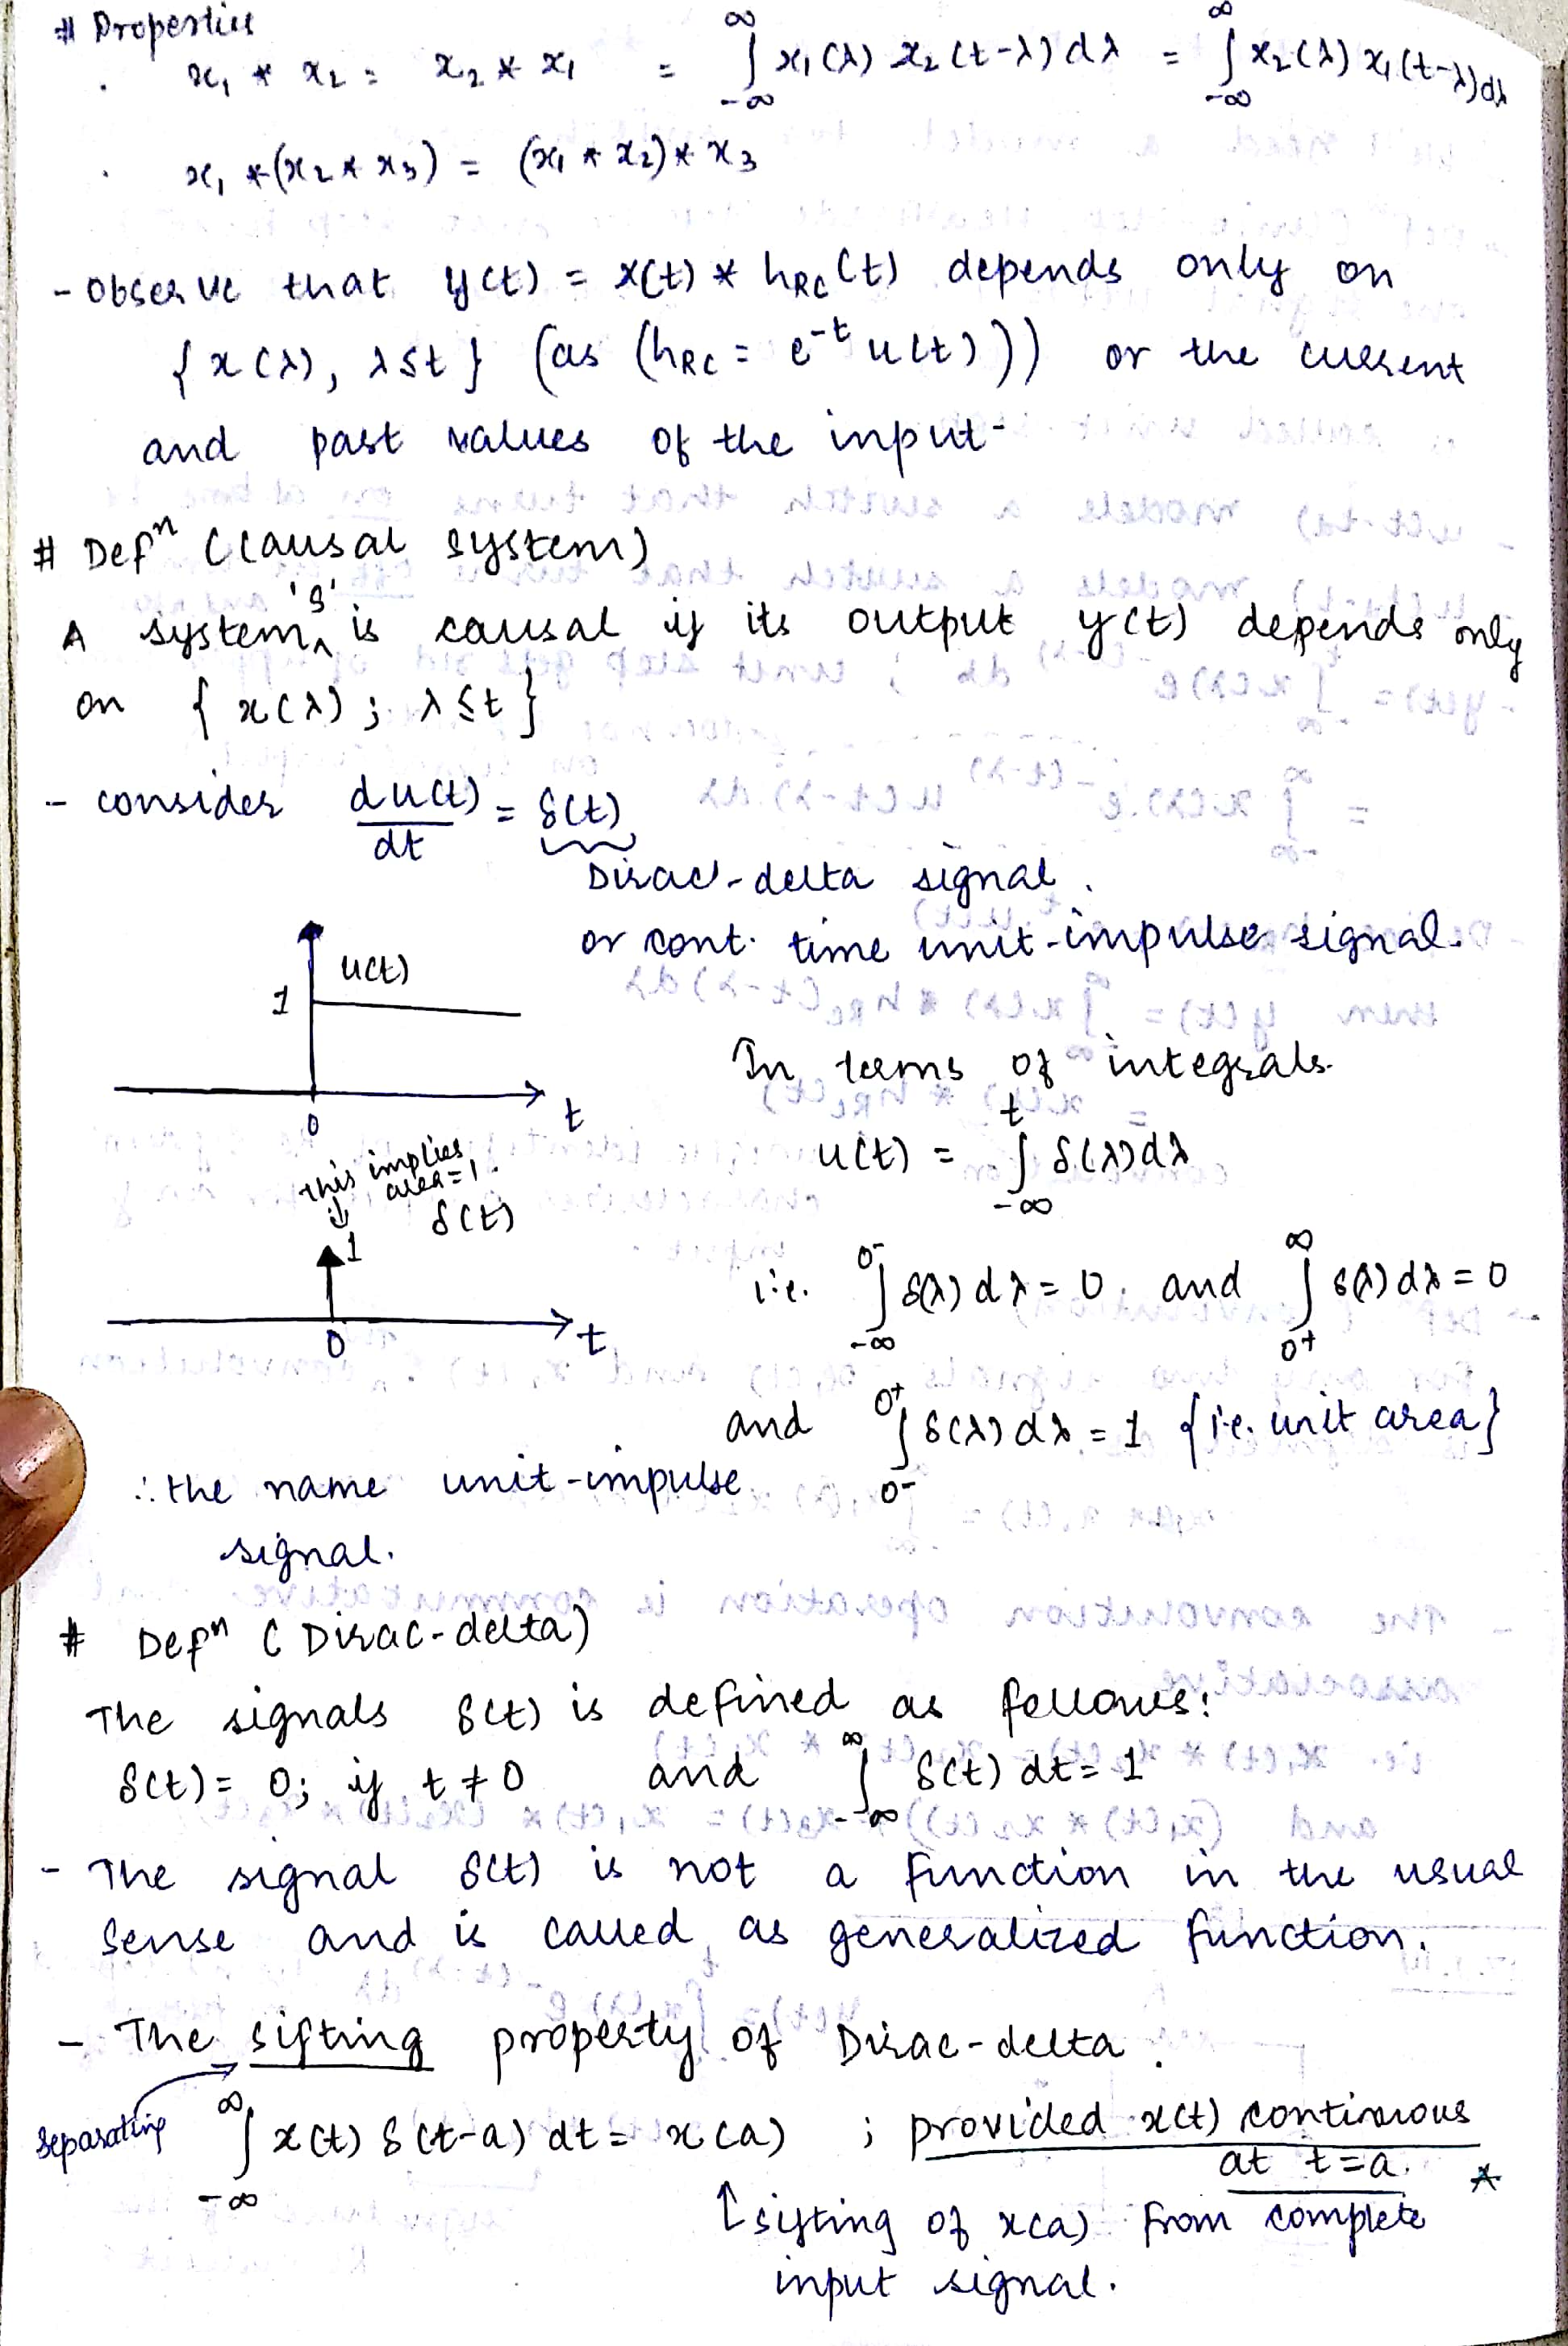 # Properties
· x₁ * x₂ = x₂ * x₁ = ∫_{-∞}^{∞} x₁(λ) x₂(t-λ)dλ = ∫_{-∞}^{∞} x₂(λ) x₁(t-λ)dλ
· x₁ *(x₂ * x₃) = (x₁ * x₂)* x₃
- Observe that y(t) = x(t) * h_RC(t) depends only on
{x(λ), λ≤t} (as (h_RC = e^{-t} u(t))) or the current
and past values of the input-
# Defⁿ (Causal system)
A system 'S' is causal if its output y(t) depends only
on {x(λ); λ≤t}
- consider du(t)/dt = δ(t)
Dirac-delta signal.
or cont. time unit-impulse signal.
u(t)
1
0
t
In terms of integrals.
u(t) = ∫_{-∞}^{t} δ(λ)dλ
this implies
area=1.
⇓
δ(t)
1
0
t
i.e. ∫_{-∞}^{0-} δ(λ)dλ = 0. and ∫_{0+}^{∞} δ(λ)dλ = 0
and ∫_{0-}^{0+} δ(λ)dλ = 1 {i.e. unit area}
∴ the name unit-impulse
signal.
# Defⁿ (Dirac-delta)
The signals δ(t) is defined as follows:
δ(t)= 0; if t≠0 and ∫_{-∞}^{∞} δ(t) dt= 1
- The signal δ(t) is not a function in the usual
sense and is called as generalized function.
- The sifting property of Dirac-delta.
separating
∫_{-∞}^{∞} x(t) δ(t-a) dt = x(a) ; provided x(t) continuous
at t=a. *
↑ sifting of x(a) from complete
input signal.